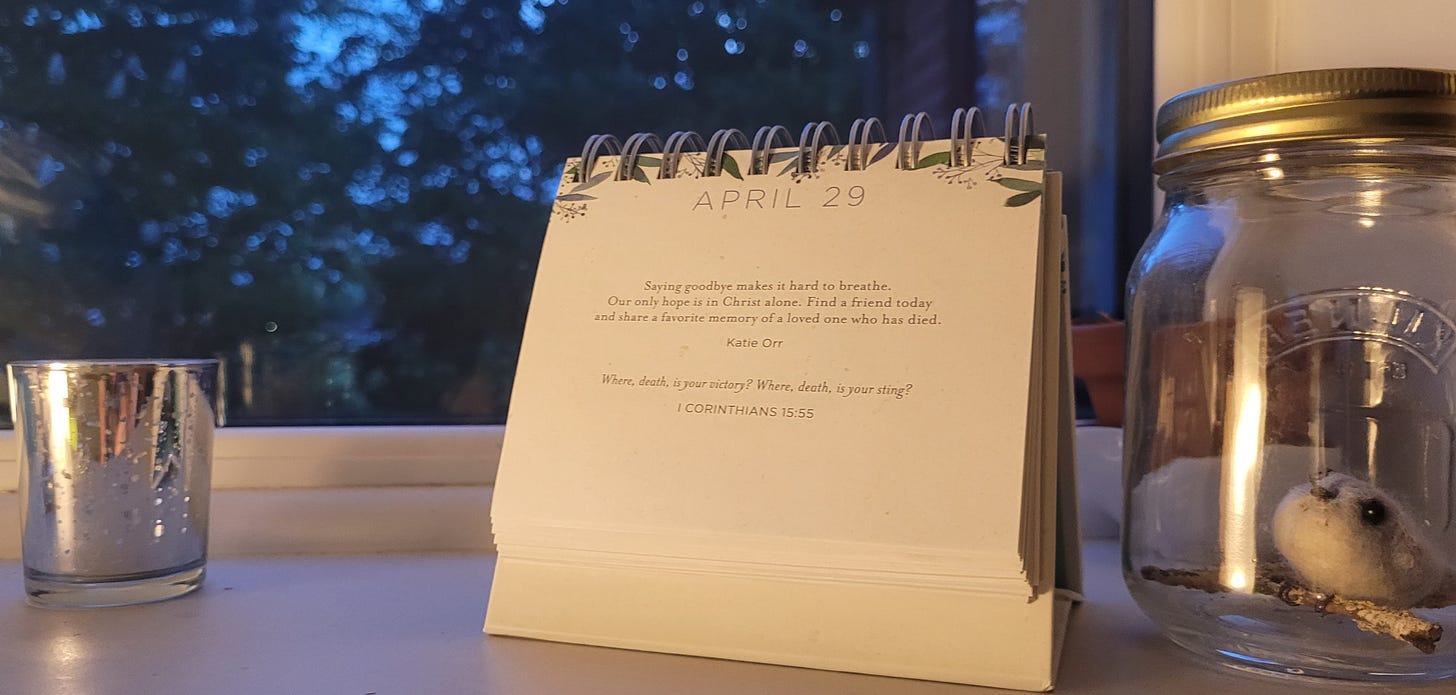 APRIL 29
Saying goodbye makes it hard to breathe.
Our only hope is in Christ alone. Find a friend today
and share a favorite memory of a loved one who has died.
Katie Orr
Where, death, is your victory? Where, death, is your sting?
I CORINTHIANS 15:55